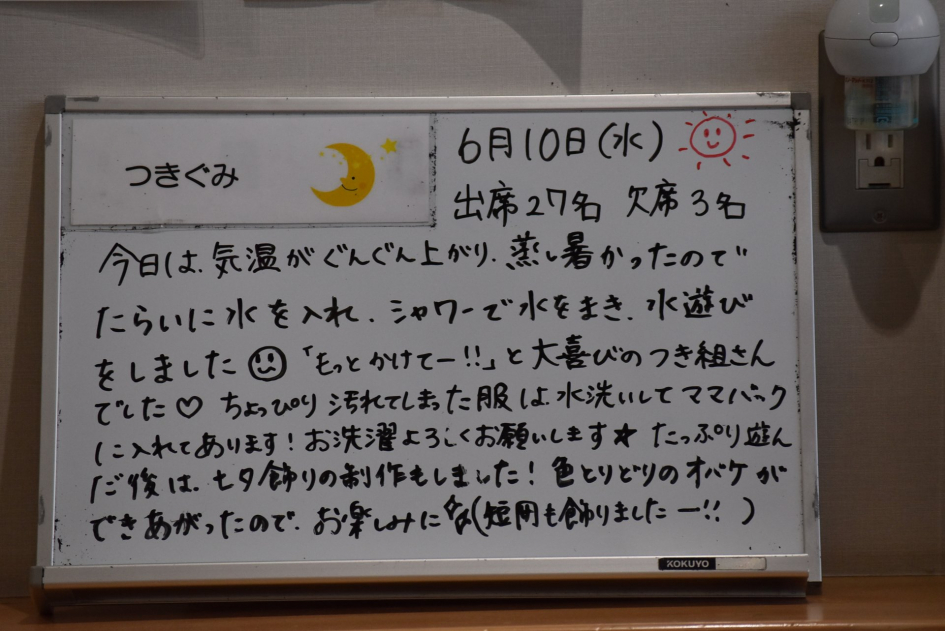 つきぐみ
6月10日(水)
出席27名 欠席3名
今日は、気温がぐんぐん上がり、蒸し暑かったので
たらいに水を入れ、シャワーで水をまき、水遊び
をしました 「もっとかけてー!!」と大喜びのつき組さん
でした♡ ちょっぴり汚れてしまった服は水洗いしてママバック
に入れてあります!お洗濯よろしくお願いします★ たっぷり遊ん
だ後は、七夕飾りの制作もしました!色とりどりのオバケが
できあがったので、お楽しみに☆(短冊も飾りましたー!!)
KOKUYO